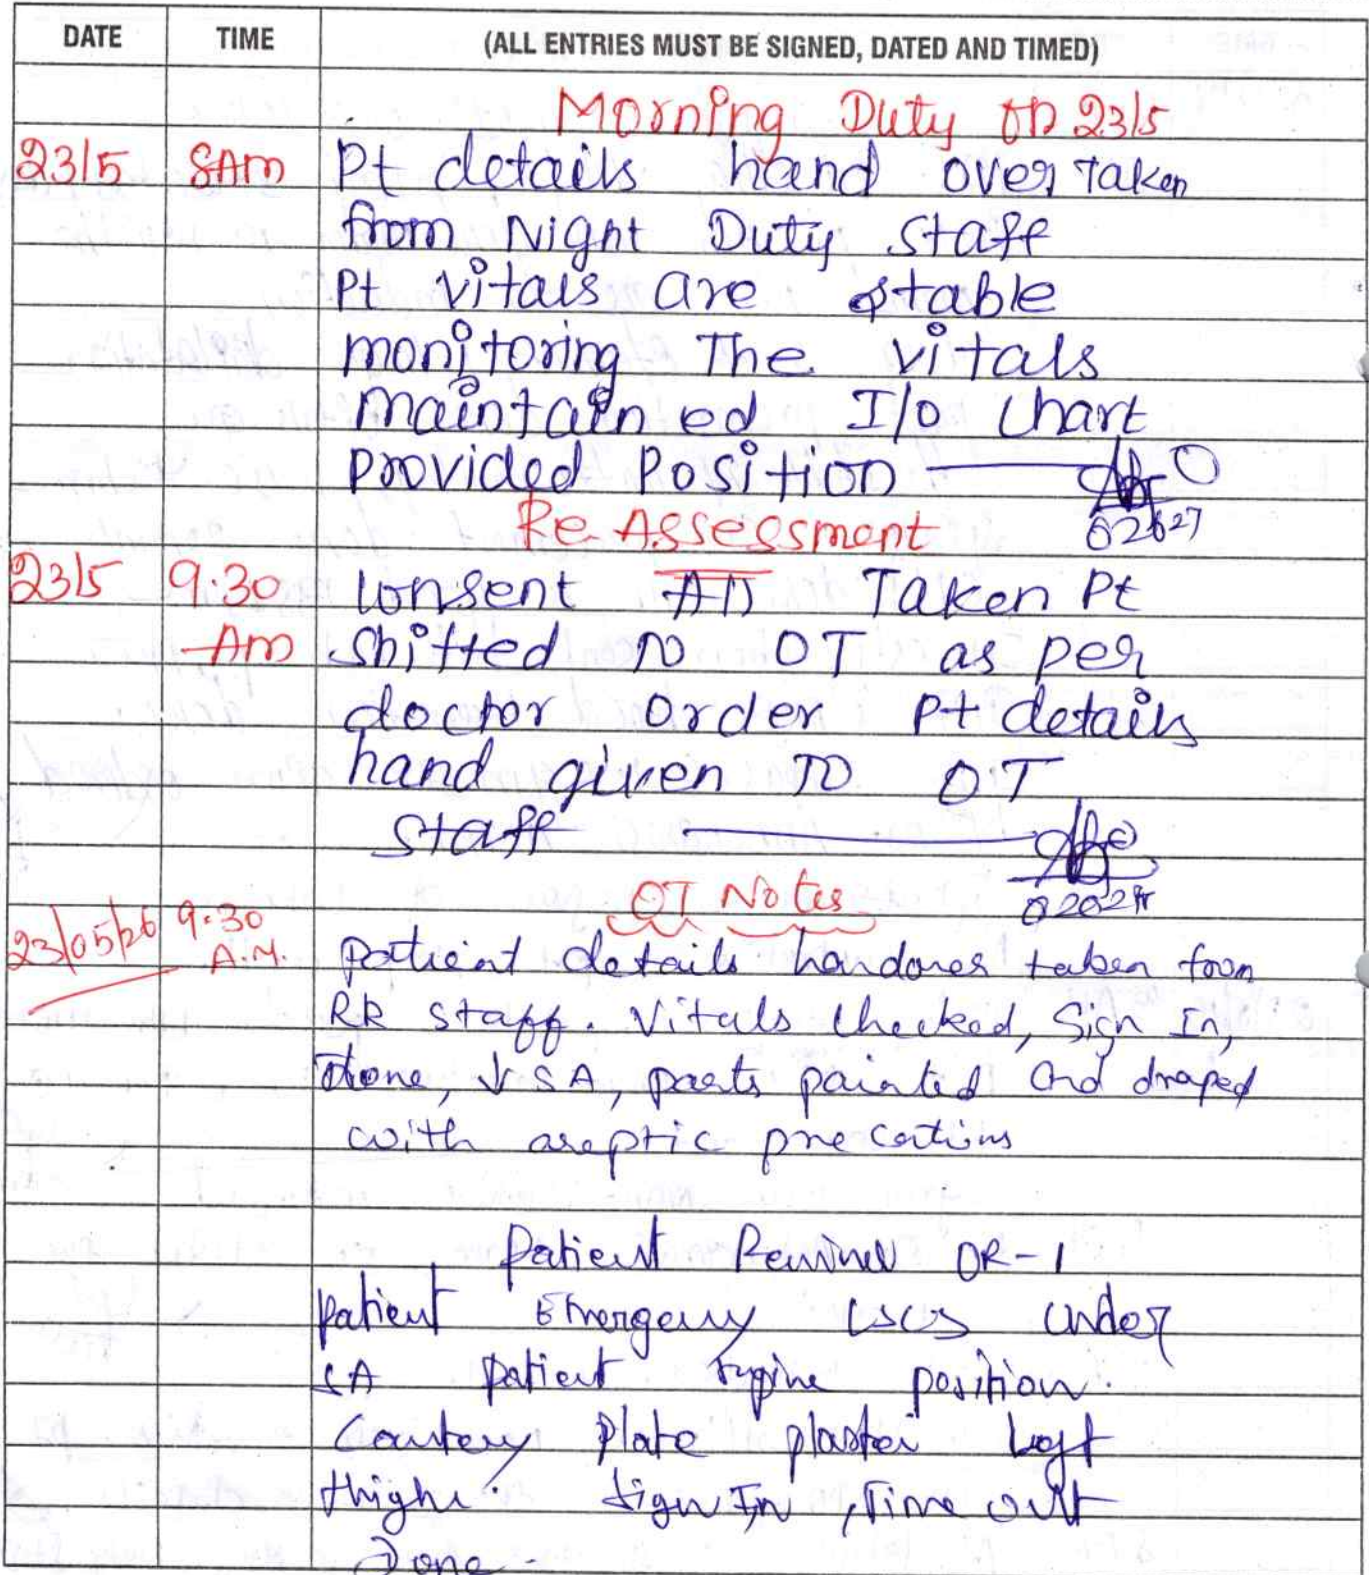 DATE TIME (ALL ENTRIES MUST BE SIGNED, DATED AND TIMED)
Morning Duty on 23/5
23/5 8Am Pt details hand over Taken
from Night Duty Staff
Pt vitals are stable
monitoring The vitals
maintained I/o Chart
provided Position
Re-Assessment
02627
23/5 9.30 Consent Taken Pt
Am Shifted TO OT as per
doctor order Pt details
hand given TO OT
staff
OT Notes
23/05/26 9.30
A.M. patient details handover taken from
RR staff. Vitals Checked, Sign In,
Done, SA, parts painted and draped
with aseptic precations
Patient OR-1
patient Emergency LSCS under
SA patient supine position.
Cautery plate plaster Left
thigh. Sign In, Time out
Done.